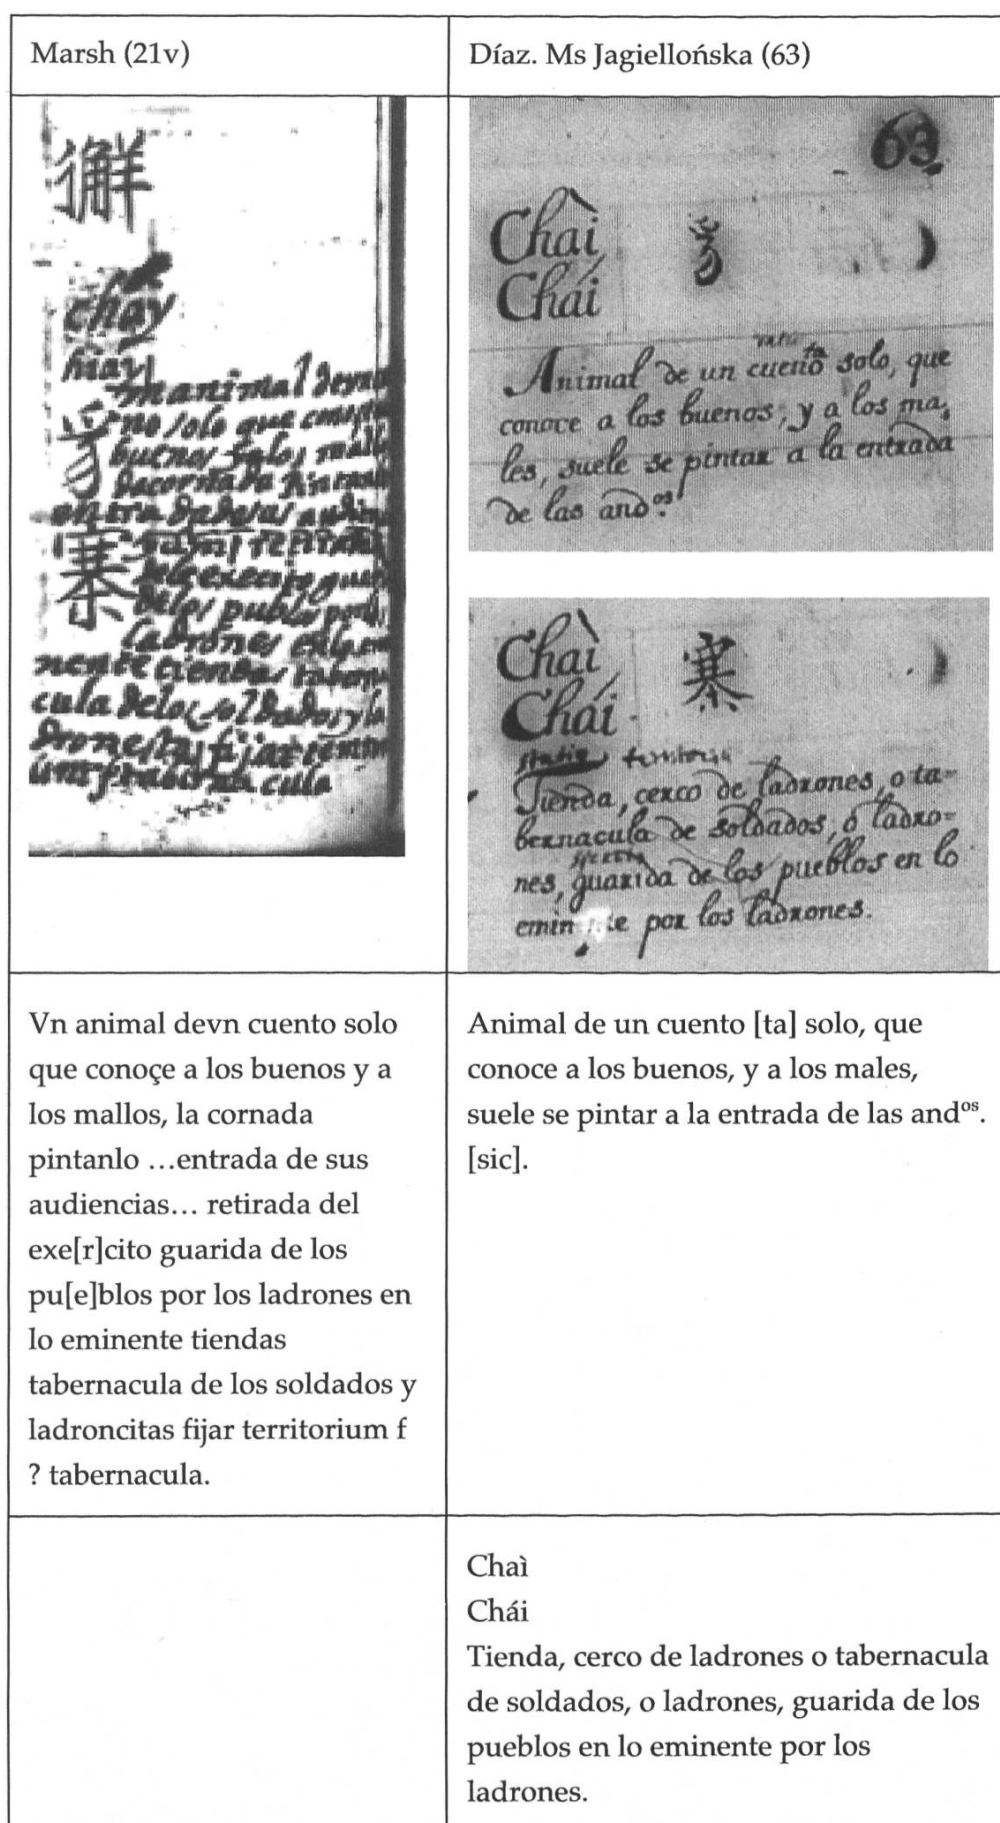 Marsh (21v)
Díaz. Ms Jagiellońska (63)
chay
hiay
animal
no solo que
buenos
寨
delos publo por
ladrones
nente tiendas
cula delos soldados y la
63
Chaì
豸
Chái
Animal de un cuento solo, que
conoce a los buenos, y a los ma,
les, suele se pintar a la entrada
de las and.os
Chaì
寨
Chái
territoriu
Tienda, cerco de ladrones, o ta-
bernacula de soldados, ó ladro-
nes, guarida de los pueblos en lo
por los ladrones.
Vn animal devn cuento solo
que conoçe a los buenos y a
los mallos, la cornada
pintanlo …entrada de sus
audiencias… retirada del
exe[r]cito guarida de los
pu[e]blos por los ladrones en
lo eminente tiendas
tabernacula de los soldados y
ladroncitas fijar territorium f
? tabernacula.
Animal de un cuento [ta] solo, que
conoce a los buenos, y a los males,
suele se pintar a la entrada de las andos.
[sic].
Chaì
Chái
Tienda, cerco de ladrones o tabernacula
de soldados, o ladrones, guarida de los
pueblos en lo eminente por los
ladrones.